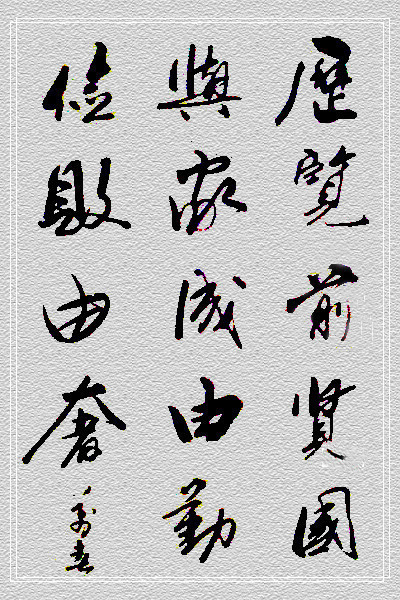 歷覽前賢國
與家成由勤
儉敗由奢